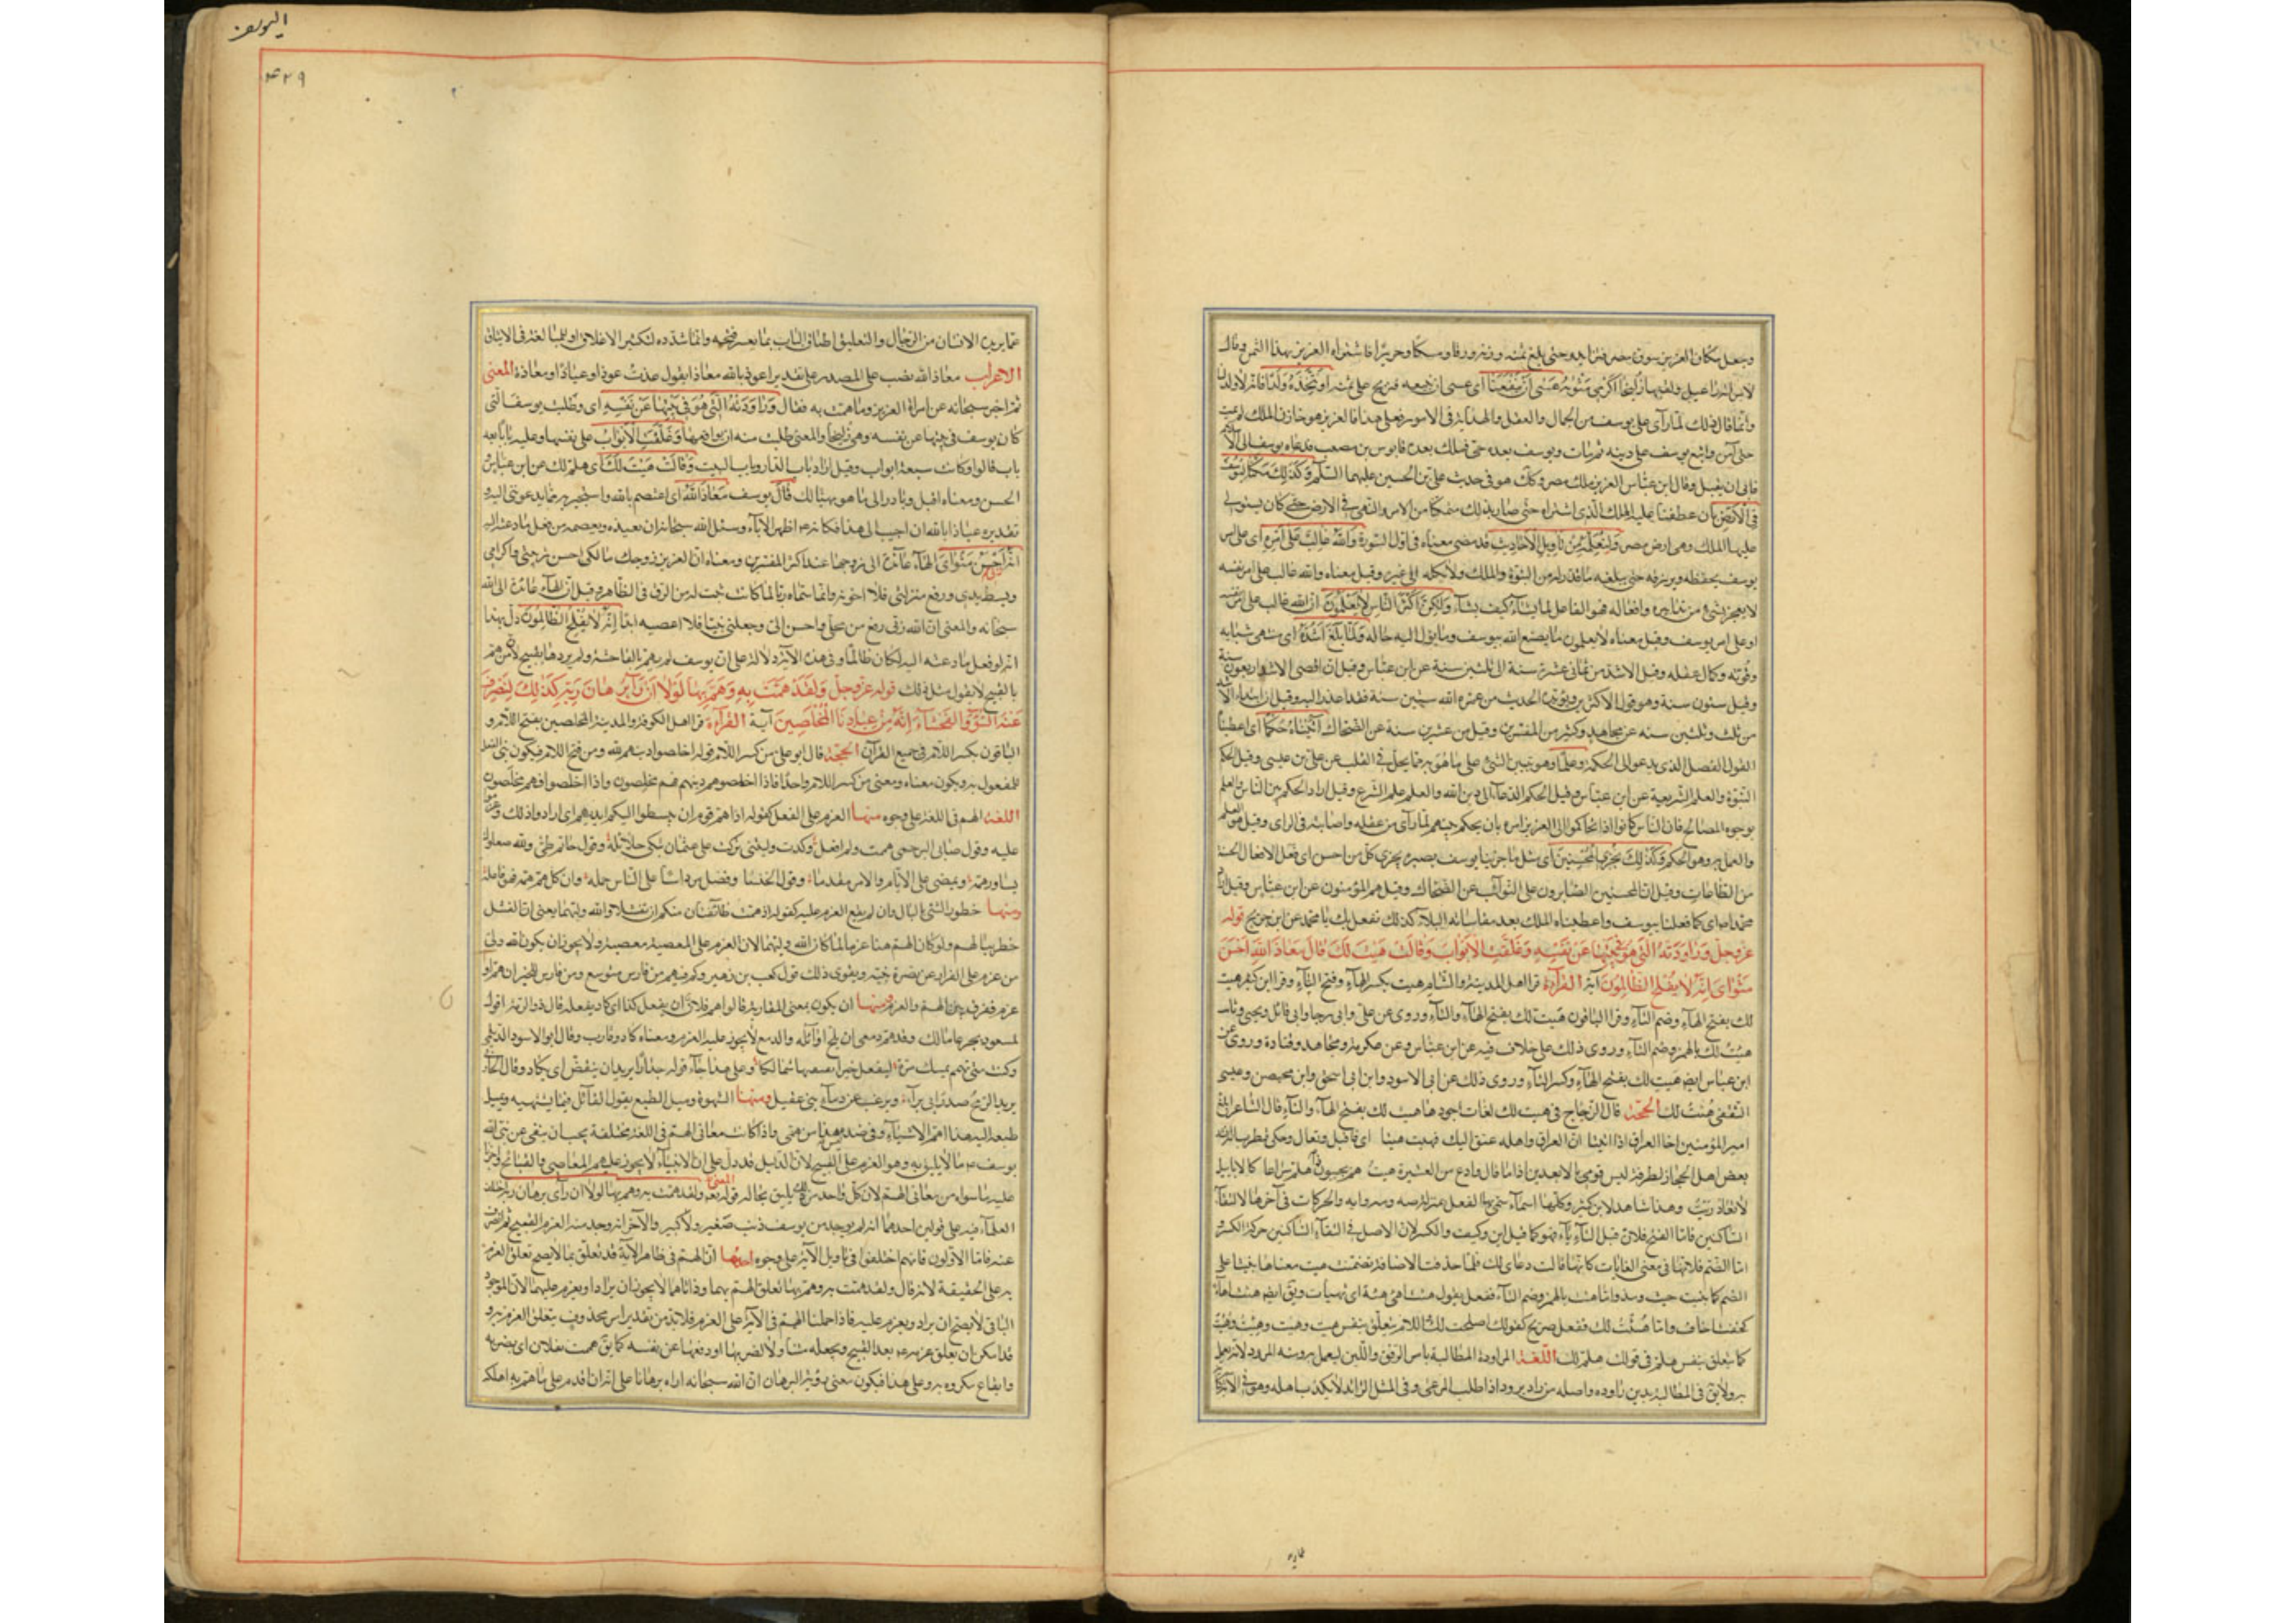 وجعل مكان العزيز سوق مصر فتزايد حتى بلغ ثمنه وزنه ورقا ومسكا وحريرا فاشتراه العزيز بهذا الثمن وقال
لامراته راعيل ولقبها زليخا اكرمي مثويه عسى ان ينفعنا اى عسى ان نبيعه فنربح على ثمنه او نتخذه ولدا فانه لا ولد لنا
وانما قال ذلك لما رأى على يوسف من الجمال والعقل والهداية فى الامور فعلى هذا فالعزيز هو خازن الملك
حتى آمن واتبع يوسف على دينه ثم مات ويوسف بعده حى فملك بعده قابوس بن مصعب فدعاه يوسف الى
فابى ان يقبل وقال ابن عباس العزيز ملك مصر وكك هو فى حديث على بن الحسين عليهما السلم وكذلك مكنا ليوسف
فى الارض بان عطفنا عليه الملك الذى اشتراه حتى صار بذلك متمكنا من الامر والنهى فى الارض حتى كان يستولى
عليها الملك وهى ارض مصر ولنعلمه من تأويل الاحاديث قد مضى معناه فى اول السورة والله غالب على امره اى على امر
يوسف يحفظه ويرزقه حتى يبلغه ما قدر له من النبوة والملك ولا يكله الى غيره وقيل معناه والله غالب على امر نفسه
لا يعجزه شىء من تدابيره وافعاله فهو الفاعل لما يشاء كيف يشاء ولكن اكثر الناس لا يعلمون ان الله غالب على امر نفسه
او على امر يوسف وقيل معناه لا يعلمون ما يصنع الله بيوسف وما يؤل اليه حاله ولما بلغ اشده اى منتهى شبابه
وقوته وكمال عقله وقيل الاشد من ثمانى عشرة سنة الى ثلثين سنة عن ابن عباس وقيل ان اقصى الاشد اربعون سنة
وقيل ستون سنة وهو قول الاكثرين ويؤيده الحديث من عمره الله ستين سنة فقد اعذر اليه وقيل ان ابتداء
من ثلث وثلثين سنه عن مجاهد وكثير من المفسرين وقيل من عشرين سنة عن الضحاك اتيناه حكما اى اعطيناه
القول الفصل الذى يدعو الى الحكمة وعلما وهو تبيين الشئ على ما هو به مما يحل فى القلب عن على بن عيسى وقيل الحكم
النبوة والعلم الشريعة عن ابن عباس وقيل الحكم الدعاء الى دين الله والعلم علم الشرع وقيل اراد الحكم بين الناس والعلم
بوجوه المصالح فان الناس كانوا اذا تحاكموا الى العزيز امره بان يحكم بينهم لما رأى من عقله واصابته فى الراى وقيل هو العلم
والعمل به وهو الحكم وكذلك نجزى المحسنين اى مثل ما جزينا يوسف بصبره نجزى كل من احسن اى فعل الافعال الحسنة
من الطاعات وقيل ان المحسنين الصابرون على النوائب عن الضحاك وقيل هم المؤمنون عن ابن عباس وقيل
محمد اى كما فعلنا بيوسف واعطيناه الملك بعد مقاساته البلاء كذلك نفعل بك يا محمد عن ابن جريج قوله
عز وجل وراودته التى هو فى بيتها عن نفسه وغلقت الابواب وقالت هيت لك قال معاذ الله احسن
مثواى انه لا يفلح الظالمون آية القرآءة قرا اهل المدينة والشام هيت بكسر الهاء وفتح التاء وقرا ابن كثير هيت
لك بفتح الهاء وضم التاء وقرا الباقون هيت لك بفتح الهاء والتاء وروى عن على وابى رجا وابى وائل ويحيى وثاب
هئت لك بالهمز وضم التاء وروى ذلك على خلاف فيه عن ابن عباس وعن عكرمة ومجاهد وقتادة وروى عن
ابن عباس ايضا هيت لك بفتح الهاء وكسر التاء وروى ذلك عن ابى الاسود وابن ابى اسحق وابن محيصن وعيسى
الثقفى هيئت لك الحجة قال الزجاج فى هيت لك لغات اجودها هيت لك بفتح الهاء والتاء قال الشاعر ابلغ
امير المؤمنين اخا العراق اذا اتيتا ان العراق واهله عنق اليك فهيت هيتا اى فاقبل وتعال وحكى قطرب انه انشده
بعض اهل الحجاز لطرفة ليس قومى بالابعدين اذا ما قال وادع من العشيرة هيت هم يجيبون هلم سراعا كالابابيل
لا يغادر بيت وهذا شاهد لابن كثير وكلها اسماء سمى بها الفعل بمنزلة صه ومه وايه والحركات فى آخرها لالتقاء
الساكنين فاما الفتح فلان قبل التاء ياء فهو كما قيل اين وكيف والكسر لان الاصل فى التقاء الساكنين حركة الكسر و
اما الضم فلانها فى معنى الغايات كانها قالت دعاى لك فلما حذفت الاضافة وتضمنت هيت معناها بنيت على
الضم كما بنيت حيث ومنذ واما هئت بالهمز وضم التاء ففعل يقول هئت اهئ هئة اى تهيأت ويق ايضا هئت اهاء
كخفت اخاف واما هيئت لك ففعل صريح كقولك اصلحت لك واللام يتعلق بنفس هيت وهيت وهيت وهئت
كما يتعلق بنفس هلم فى قولك هلم لك اللغة المراودة المطالبة بامر بالرفق واللين ليعمل به ومنه المرود لانه يعمل
به ولا يق فى المطالبة بدين راوده واصله من راد يرود اذا طلب المرعى وفى المثل الرائد لا يكذب اهله وهو فى الآية
عما
اليوسف
٤٢٩
عما يريده الانسان من الرجال والتغليق اطباق الباب بما يعسر فتحه وانما شدده لتكثير الاغلاق او للمبالغة فى الايثاق
الاعراب معاذ الله نصب على المصدر على تقدير اعوذ بالله معاذا يقول عذت عوذا وعياذا ومعاذة المعنى
ثم اخبر سبحانه عن امراة العزيز وما همت به فقال وراودته التى هو فى بيتها عن نفسه اى وطلبت يوسف التى
كان يوسف فى بيتها عن نفسه وهى زليخا والمعنى طلبت منه ان يواقعها وغلقت الابواب على نفسها وعليه بابا بعد
باب قالوا وكانت سبعة ابواب وقيل اراد باب الدار وباب البيت وقالت هيت لك اى هلم لك عن ابن عباس و
الحسن ومعناه اقبل وبادر الى ما هو مهيا لك قال يوسف معاذ الله اى اعتصم بالله واستجير به مما يدعونى اليه و
تقديره عياذا بالله ان اجيب الى هذا فكانه ع اظهر الاباء وسئل الله سبحانه ان يعيذه ويعصمه من فعل ما دعته اليه
انه ربى احسن مثواى الهاء عائدة الى زوجها عند اكثر المفسرين ومعناه ان العزيز زوجك مالكى احسن تربيتى واكرامى
وبسط يدى ورفع منزلتى فلا اخونه وانما سماه ربا لما كانت ثبت له من الرق فى الظاهر وقيل ان الهاء عائدة الى الله
سبحانه والمعنى ان الله ربى رفع من محلى واحسن الى وجعلنى نبيا فلا اعصيه ابدا انه لا يفلح الظالمون دل بهذا
انه لو فعل ما دعته اليه لكان ظالما وفى هذه الآية دلالة على ان يوسف لم يهم بالفاحشة ولم يردها بقبيح لان من هم
بالقبيح لا يقول مثل ذلك قوله عز وجل ولقد همت به وهم بها لولا ان رأى برهان ربه كذلك لنصرف
عنه السوء والفحشاء انه من عبادنا المخلصين آية القرآءة قرا اهل الكوفة والمدينة المخلصين بفتح اللام و
الباقون بكسر اللام فى جميع القرآن الحجة قال ابو على من كسر اللام قوله اخلصوا دينهم لله ومن فتح اللام فيكون بنى الفعل
للمفعول به ويكون معناه ومعنى من كسر اللام واحدا فاذا اخلصوا هم دينهم فهم مخلصون واذا اخلصوا فهم مخلصون
اللغة الهم فى اللغة على وجوه منها العزم على الفعل كقوله اذ هم قوم ان يبسطوا اليكم ايديهم اى ارادوا ذلك وعزموا
عليه وقول ضابى البرجمى هممت ولم افعل وكدت وليتنى تركت على عثمان تبكى حلائله وقول حاتم طئ ولله صعلوك
يساور همه ويمضى على الايام والامر مقدما وقول الخنسا وفضل مرداسا على الناس حلمه وان كل هم همه فهو فاعله
ومنها خطور الشئ بالبال وان لم يقع العزم عليه كقوله اذ همت طائفتان منكم ان تفشلا والله وليهما يعنى ان الفشل
خطر ببالهم ولو كان الهم هنا عزما لما كان الله وليهما لان العزم على المعصية معصية ولا يجوز ان يكون الله ولى
من عزم على الفرار عن نصرة نبيه ويقوى ذلك قول كعب بن زهير وكم فيهم من فارس متوسع ومن فارس للخير ان هم او
عزم ففرق بين الهم والعزم ومنها ان يكون بمعنى المقاربة قالوا هم فلان ان يفعل كذا اى كاد يفعله قال ذو الرمة اقول
لمسعود بجرعاء مالك وقد هم دمعى ان يلج اوائله والدمع لا يجوز عليه العزم ومعناه كاد وقارب وقال ابو الاسود الدئلى
وكنت متى تهمم يمينك مرة لتفعل خيرا تعتقبها شمالكا وعلى هذا جاء قوله جدارا يريد ان ينقض اى يكاد وقال الحارثى
يريد الرمح صدر ابى براء ويرغب عن دماء بنى عقيل ومنها الشهوة وميل الطبع يقول القائل فيما يشتهيه ويميل
طبعه اليه هذا اهم الاشياء الى وفى ضده ليس هذا من همى واذا كانت معانى الهم فى اللغة مختلفة يجب ان ينفى عن نبى الله
يوسف ع ما لا يليق به وهو العزم على القبيح لان الدليل قد دل على ان الانبياء لا يجوز عليهم المعاصى والقبائح واجزنا
عليه ما سواه من معانى الهم لان كل واحد من ذلك يليق بحاله المعنى قوله تعه ولقد همت به وهم بها لولا ان رأى برهان ربه اختلف
العلماء فيه على قولين احدهما انه لم يوجد من يوسف ذنب صغير ولا كبير والآخر انه وجد منه العزم القبيح ثم انصرف
عنه فاما الاولون فانهم اختلفوا فى تاويل الآية على وجوه احدها ان الهم فى ظاهر الآية قد تعلق بما لا يصح تعلق العزم
به على الحقيقة لانه قال ولقد همت به وهم بها تعلق الهم بهما وذاتاهما لا يجوز ان يرادا ويعزم عليهما لان الموجود
الباقى لا يصح ان يراد ويعزم عليه فاذا حملنا الهم فى الآية على العزم فلا بد من تقدير امر محذوف يتعلق العزم به و
قد امكن ان يعلق عزمه ع بغير القبيح ويجعله متناولا لضربها او دفعها عن نفسه كما يق هممت بفلان اى بضربه
وايقاع مكروه به وعلى هذا فيكون معنى رؤية البرهان ان الله سبحانه اراه برهانا على انه ان اقدم على ما هم به اهلكه